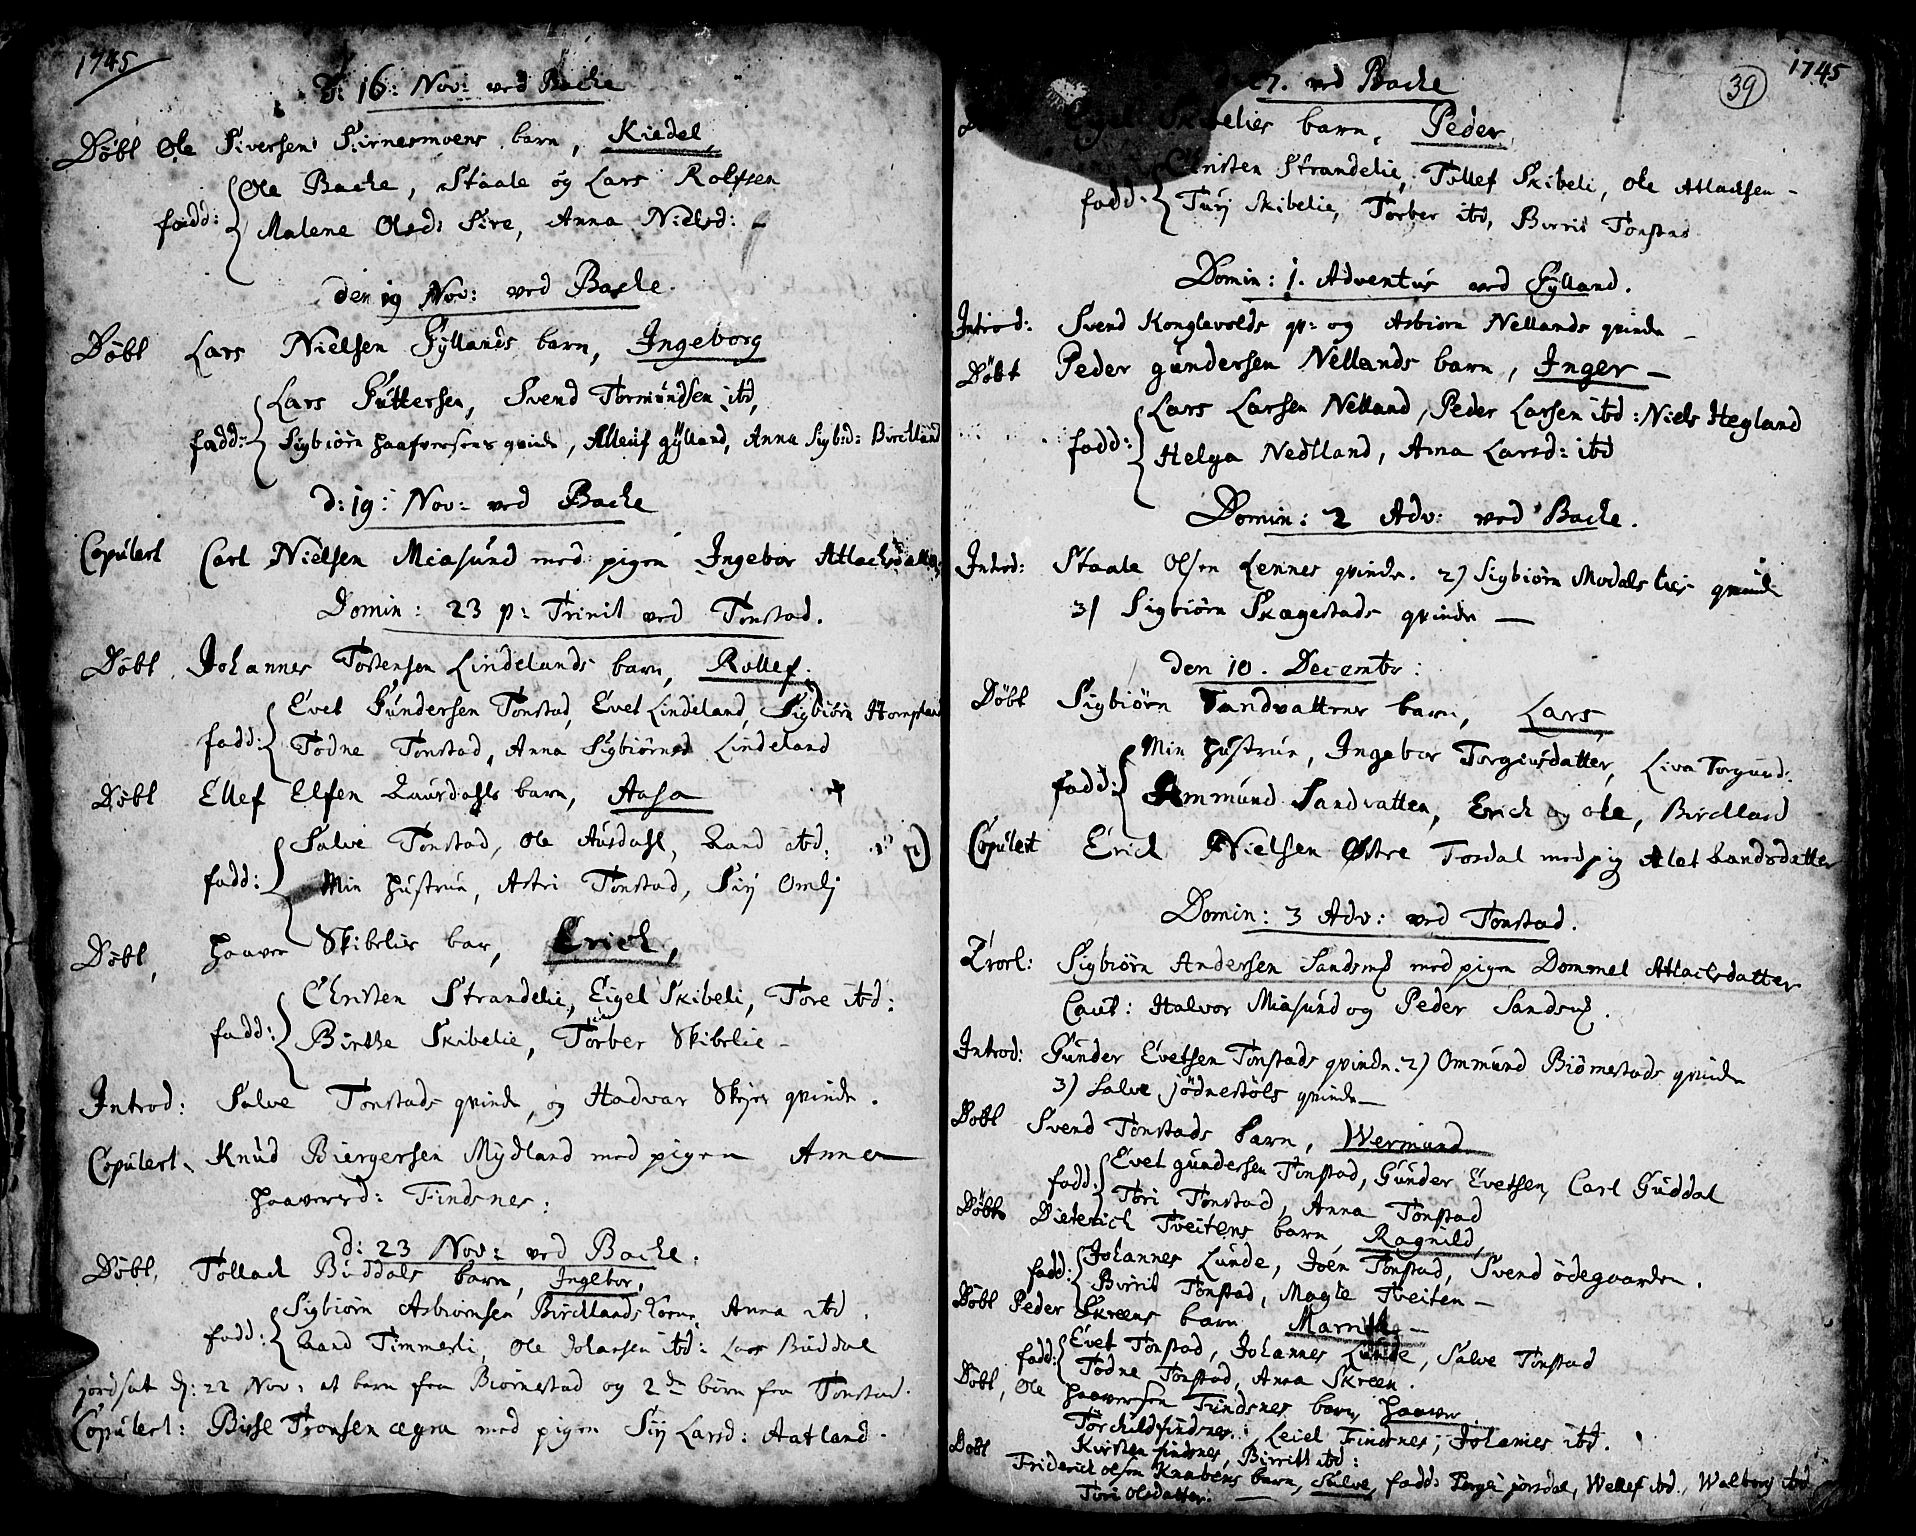 1745
D: 16: Nov: ved Bache
Døbt Ole Siversens Sirnesmoens barn, Kiedel,
Ole Bache, Staale og Lars Rolfsen
fadd: Malene Olsd: Sire, Anna Nielsd:
den 19 Nov: ved Bache.
Døbt Lars Nielsen Gyllands barn, Ingeborg
Lars Guttersen, Svend Tormundsen ibd,
fadd: Sigbiørn Haafversens qvinde, Alleuf gÿlland, Anna Sigbd: Birckland
d: 19: Nov: ved Bache
Copulert Carl Nielsen Miasund med pigen Ingebor Atlachsdatter
Domin: 23 p: Trinit ved Tonstad.
Døbt Johannes Tostensen Lindelands barn, Rollef.
Evet Gundersen Tonstad, Evet Lindeland, Sigbiørn Hompland
fadd: Todne Tonstad, Anna Sigbiørnsd Lindeland
Døbt Ellef Elfsen barn, Aasa
Salve Tonstad, Ole Ausdahl, Aand ibd:
fadd: Min Hustrue, Astri Tonstad, Sirj Omlj
Døbt, Haaver Skibelies bar, Erich,
Christen Strandelie, Eigel Skibeli, Tore ibd:
fadd: Birthe Skibelie, Torber Skibelie -
Introd: Salve Tonstads qvinde, og Hadvar Skjers qvinde.
Copulert, Knud Biergersen Mÿdland med pigen Anna
Haaversd: Findsnes:
d: 23 Nov: ved Bache.
Døbt, Tollach Buddals barn, Ingebor,
Sigbiørn Asbiørnsen Bircklands kone, Anna ibd.
fadd: Aand Timmerli, Ole Johansen ibd: Lars Buddal
jordsat d: 22 Nov: et barn fra Biørnestad og 2de børn fra Tonstad.
Copulert: Birse Tronsen ægra med pigen Sirj Larsd: Aatland.
39
1745
27. ved Bache
Skibelies barn, Peder,
Christen Strandelie, Tollef Skibeli, Ole Atlachsen -
fadd: Turj Skibelie, Torber ibd, Birrit Tonstad
Domin: 1. Adventus ved Gÿlland.
Introd: Svend Konglevolds qv: og Asbiørn Nellands qvinde
Døbt Peder gundersen Nellands barn, Inger -
Lars Larsen Nelland, Peder Larsen ibd: Niels Hegland
fadd: Helga Nedlland, Anna Larsd: ibd
Domin: 2 Adv: ved Bache.
Introd: Staale Olsen Lennes qvinde. 2) Sigbiørn Modals qvinde
3) Sigbiørn Skagestads qvinde -
den 10. Decembr:
Døbt Sigbiørn Sandvattens barn, Lars,
Min Hustrue, Ingebor Torgiusdatter, Liva Torgiusd:
fadd: Ammund Sandvatten, Erich og Ole, Birckland
Copulert Erick Nielsen Østre Tosdal med pig Alet Aandsdatter
Domin: 3 Adv: ved Tonstad.
Trorl: Sigbiørn Andersen Sandsmd med pigen Dommel Atlachsdatter
Caut: Halvor Miasund og Peder Sandsmd.
Introd: Gunder Evetsen Tonstads qvinde. 2) Ommund Biørnestads qvinde
3) Salve jødnestøls qvinde -
Døbt Svend Tonstads barn, Wermund.
Evet gundersen Tonstad, Gunder Evetsen, Carl Guddal
fadd: Tori Tonstad, Anna Tonstad
Døbt Dieterich Tveitens barn, Ragnild,
Johannes Lunde, Joen Tonstad, Svend ødegaarden.
fadd: Birrit Tonstad, Magte Tveiten -
Døbt Peder Skreens barn, -
Evet Tonstad, Johannes Lunde, Salve Tonstad
fadd: Todne Tonstad, Anna Skreen.
Døbt, Ole Haaversen Findsnes barn, Haaver.
Torchild findsnes, Leiel Findsnes, Johannes ibd.
Kirsten findsnes, Birritt ibd:
Døbt Friderich olsen Knabens barn, Salve, fadd: Torgi josdal, Wellef ibd., Walborg ibd
Tori Olsdatter. -